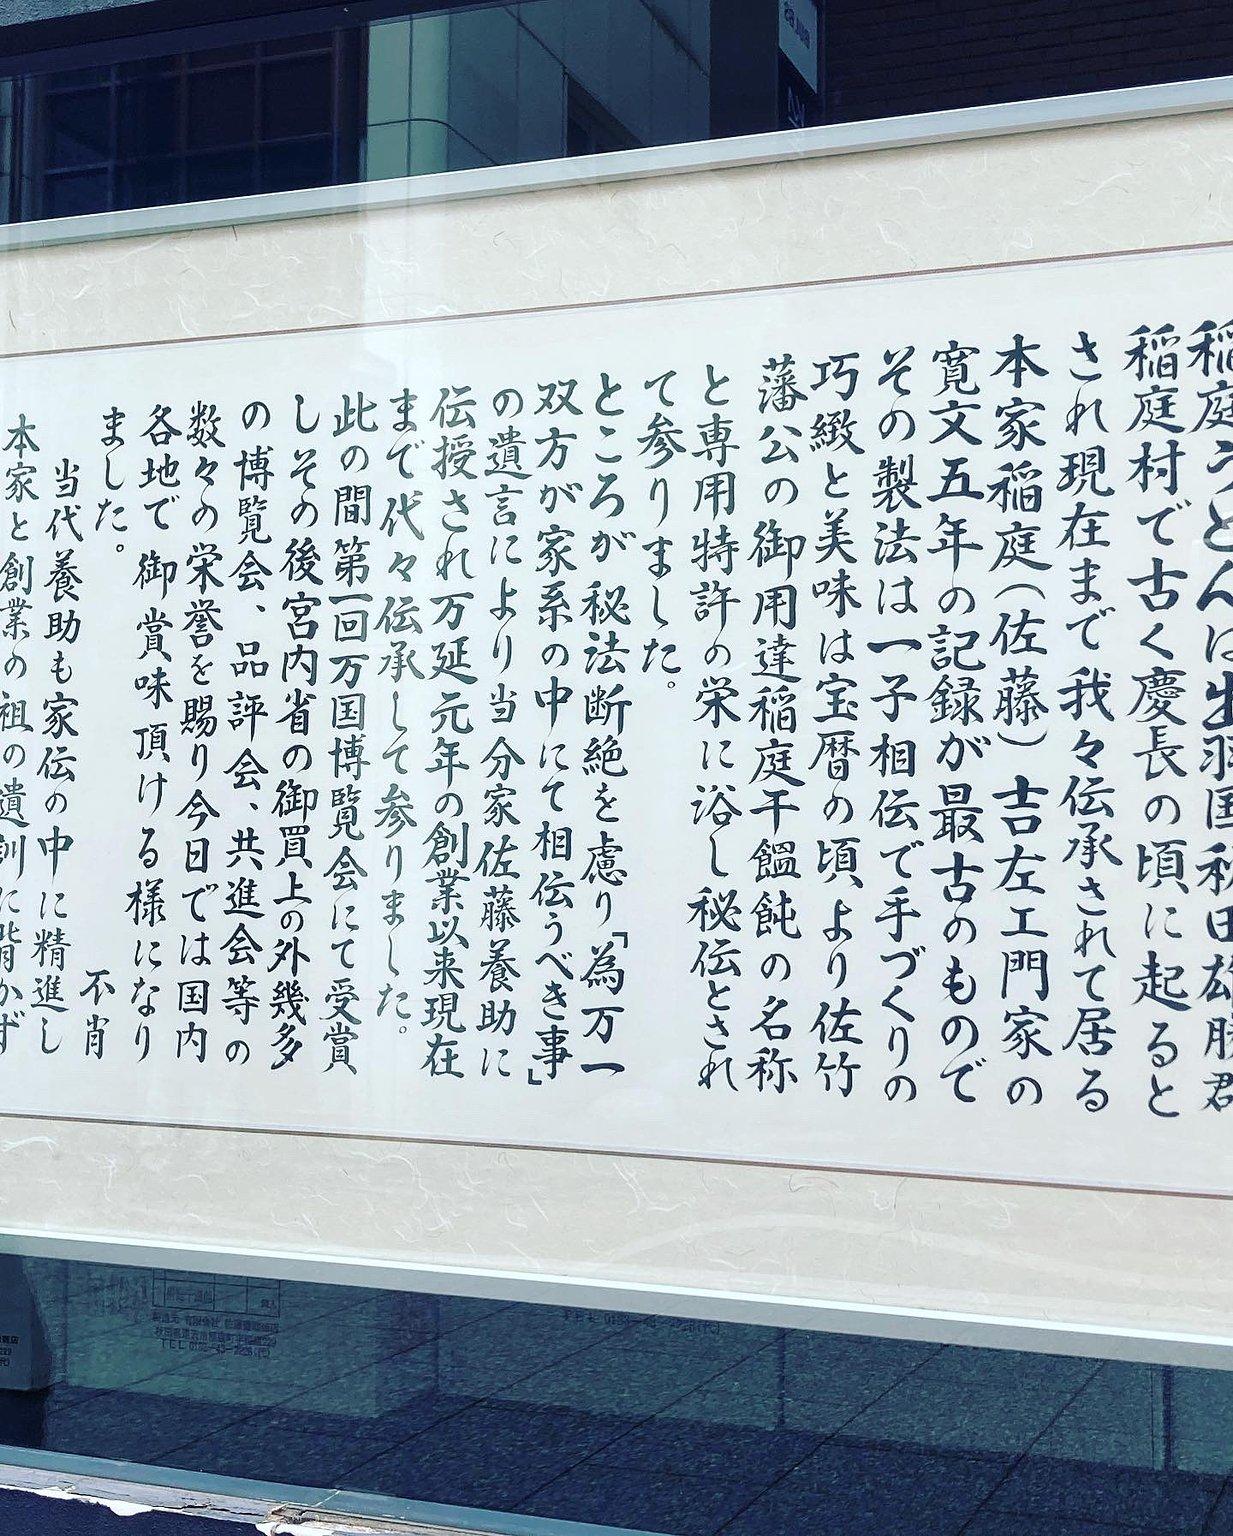 稲庭うどんは出羽国秋田雄勝群
稲庭村で古く慶長の頃に起ると
され現在まで我々伝承されて居る
本家稲庭（佐藤）吉左エ門家の
寛文五年の記録が最古のもので
その製法は一子相伝で手づくりの
巧緻と美味は宝暦の頃より佐竹
藩公の御用達稲庭干饂飩の名称
と専用特許の栄に浴し秘伝とされ
て参りました。
ところが秘法断絶を慮り「為万一
双方が家系の中にて相伝うべき事」
の遺言により当分家佐藤養助に
伝授され万延元年の創業以来現在
まで代々伝承して参りました。
此の間第一回万国博覧会にて受賞
しその後宮内省の御買上の外幾多
の博覧会、品評会、共進会等の
数々の栄誉を賜り今日では国内
各地で御賞味頂ける様になり
ました。
不肖
当代養助も家伝の中に精進し
本家と創業の祖の遺訓に背かず